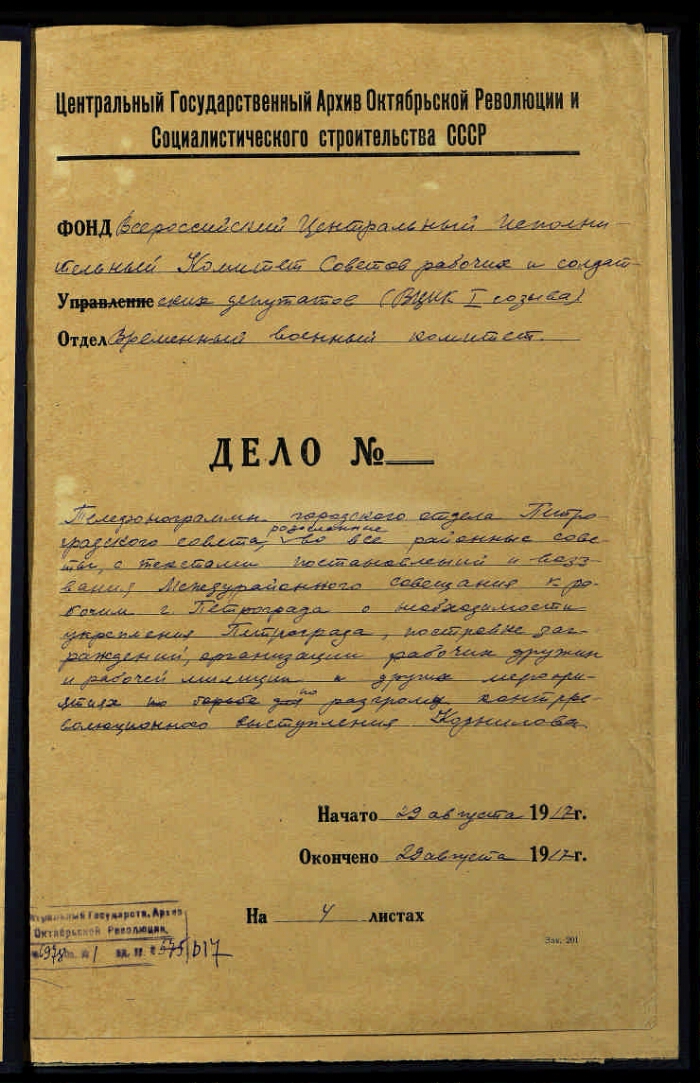 Центральный Государственный Архив Октябрьской Революции и
Социалистического строительства СССР
ФОНД Всероссийский Центральный Исполни-
тельный Комитет Советов рабочих и солдат-
Управление ских депутатов (ВЦИК I созыва)
Отдел Временный военный комитет.
ДЕЛО №
Телефонограммы городского отдела Петро-
градского совета, разосланные во все районные сове-
ты, с текстами постановлений и воз-
вания Междурайонного совещания к ра-
бочим г. Петрограда о необходимости
укрепления Петрограда, постройке заг-
раждений, организации рабочих дружин
и рабочей милиции и других меропри-
ятиях по борьбе по разгрому контрре-
волюционного выступления Корнилова.
Начато 29 августа 1917 г.
Окончено 29 августа 1917 г.
На 4 листах
Центральный Государств. Архив
Октябрьской Революции,
6978 оп. № 1 ед. хр. № 575/б17
Зак. 201